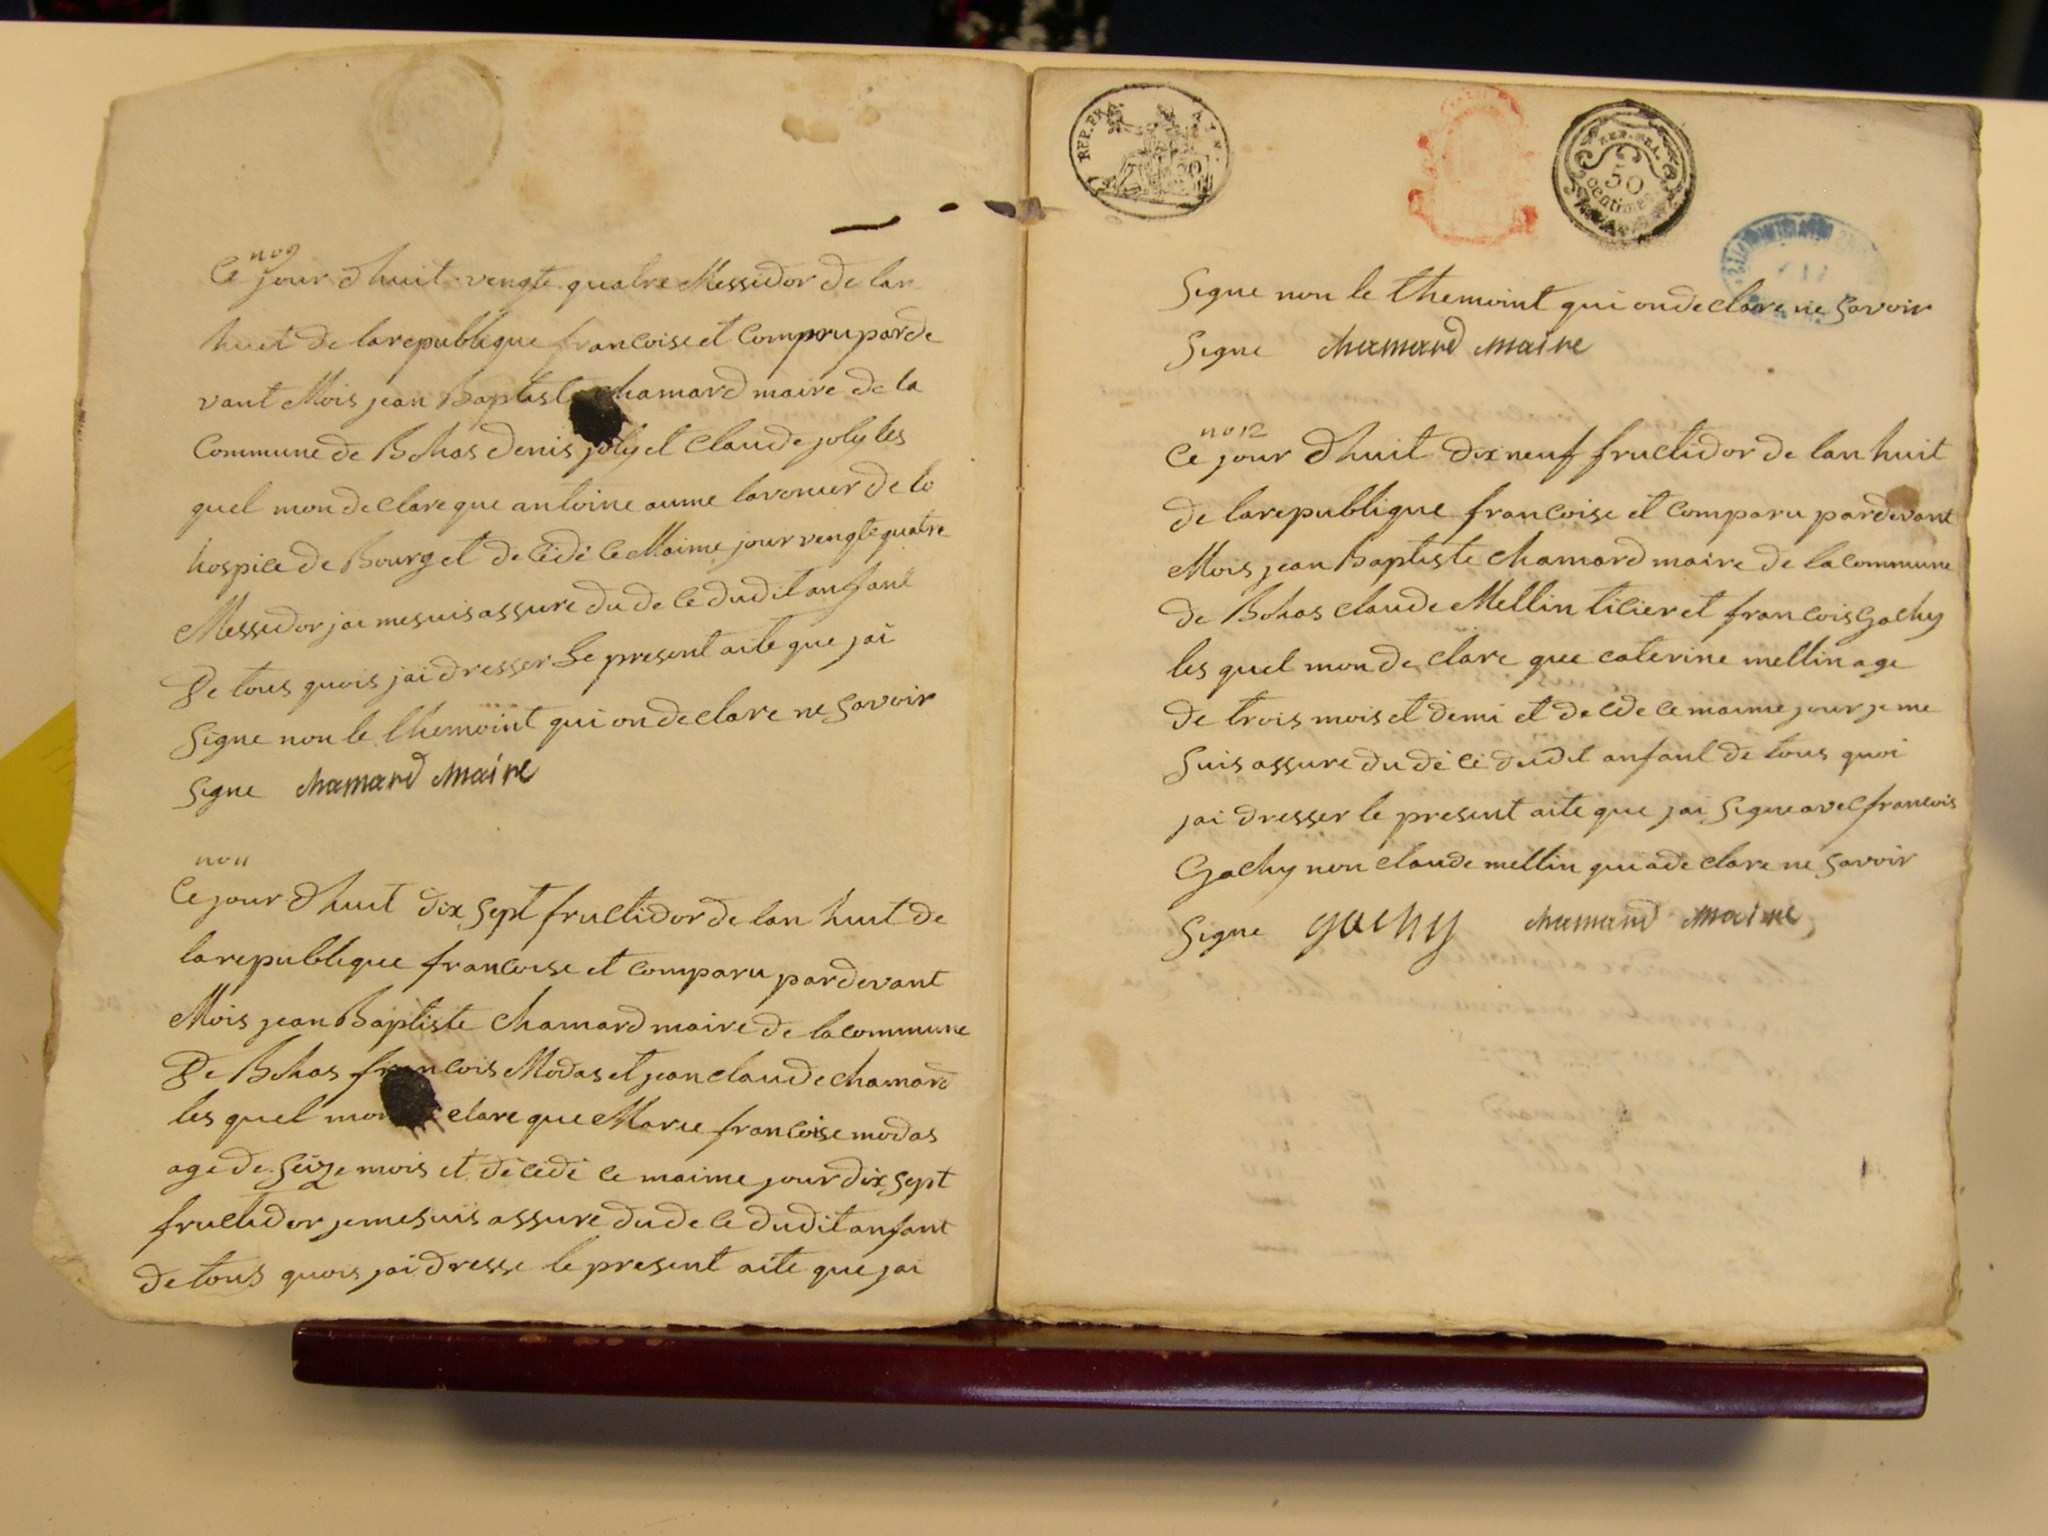 no 9
Ce jour dhuit vengte quatre Messidor de lan
huit de larepublique francoise et compru parde
vant Mois jean Baptiste chamard maire de la
Commune de Bohas denis joly et Claude joly les
quel mon de clare que antoine aume lavenuer de lo
hospice de Bourg et decidé ce Maime jour vengte quatre
Messidor jai mesuis assure du de ce dudit anfant
De tous quois jai dresser Le present aite que jai
Signe non le themoint qui on declare ne savoir
signe chamard Maire
no 11
Ce jour dhuit dix sept fructidor de lan huit de
larepublique francoise et comparu pardevant
Mois jean Baptiste chamard maire de lacommune
De Bohas francois Modas et jean claude chamard
les quel mon clare que Marie francoise modas
age de seize mois et décédé ce maime jour dix sept
fructidor jemesuis assure du de ce dudit anfant
de tous quois jai dresse le present aite que jai
REP. FRA.
50
centimes
Signe non le themoint qui on declare ne savoir
signe chamard maire
no 12
Ce jour dhuit dix neuf fructidor de lan huit
de larepublique francoise et comparu pardevant
Mois jean Baptiste chamard maire de lacommune
de Bohas claude Mellin ticier et francois Gachy
les quel mon de clare que caterine mellin age
de trois mois et demi et décéde ce maime jour je me
suis assure du dé cé dudit anfant de tous quoi
jai dresser le present aite que jai signe avec francois
Gachy non claude mellin qui a declare ne savoir
signe gachy chamard maire